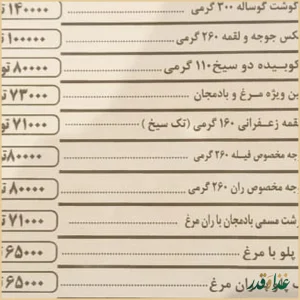 گوشت گوساله ۳۰۰ گرمی ۱۴۰۰۰۰
کس جوجه و لقمه ۲۶۰ گرمی ۱۰۰۰۰۰
کوبیده دو سیخ ۱۱۰ گرمی ۸۰۰۰۰
ین ویژه مرغ و بادمجان ۷۳۰۰۰
قمه زعفرانی ۱۶۰ گرمی (تک سیخ) ۷۱۰۰۰
جه مخصوص فیله ۲۶۰ گرمی ۸۰۰۰۰
جه مخصوص ران ۲۶۰ گرمی ۸۰۰۰۰
شت مسمی بادمجان با ران مرغ ۷۱۰۰۰
پلو با مرغ ۶۵۰۰۰
ران مرغ ۶۵۰۰۰